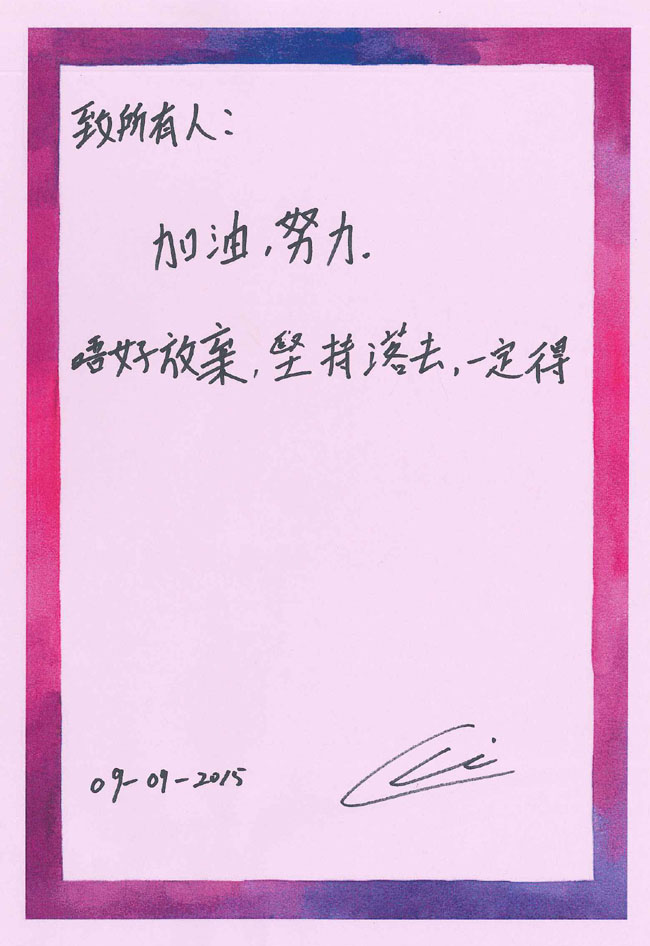 致所有人：
加油，努力.
唔好放棄，堅持落去，一定得
09-09-2015